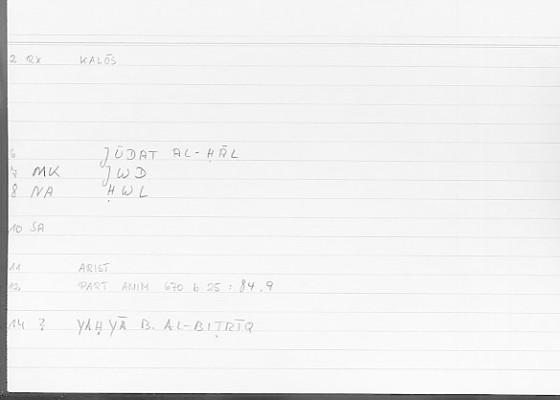 2 RX KALŌS
6 JŪDAT AL-ḤĀL
7 MK JWD
8 NA ḤWL
10 SA
11 ARIST
12 PART ANIM 670 b 25 : 84.9
14 ? YAḤYĀ B. AL-BIṬRĪQ